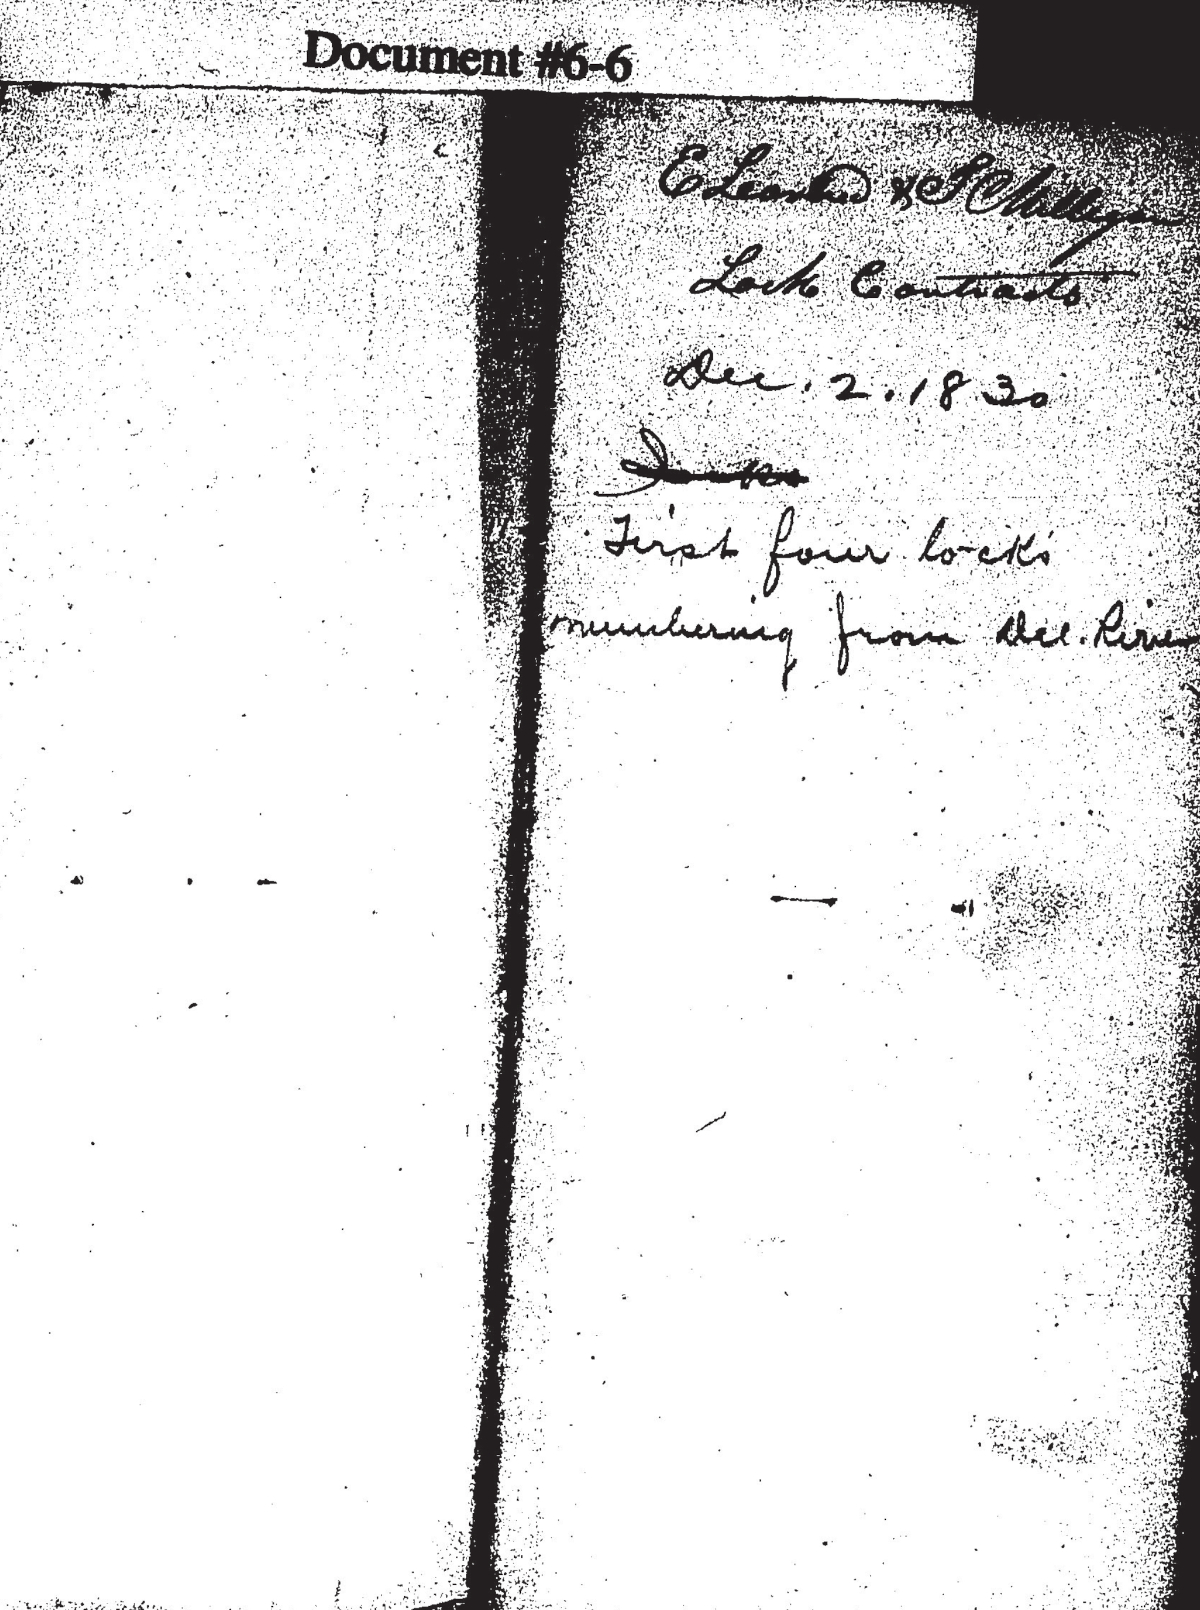 Document #6-6
E Leonard & S C Milligan
Lock Contracts
Dec. 2. 1830
First four locks
numbering from Del. River